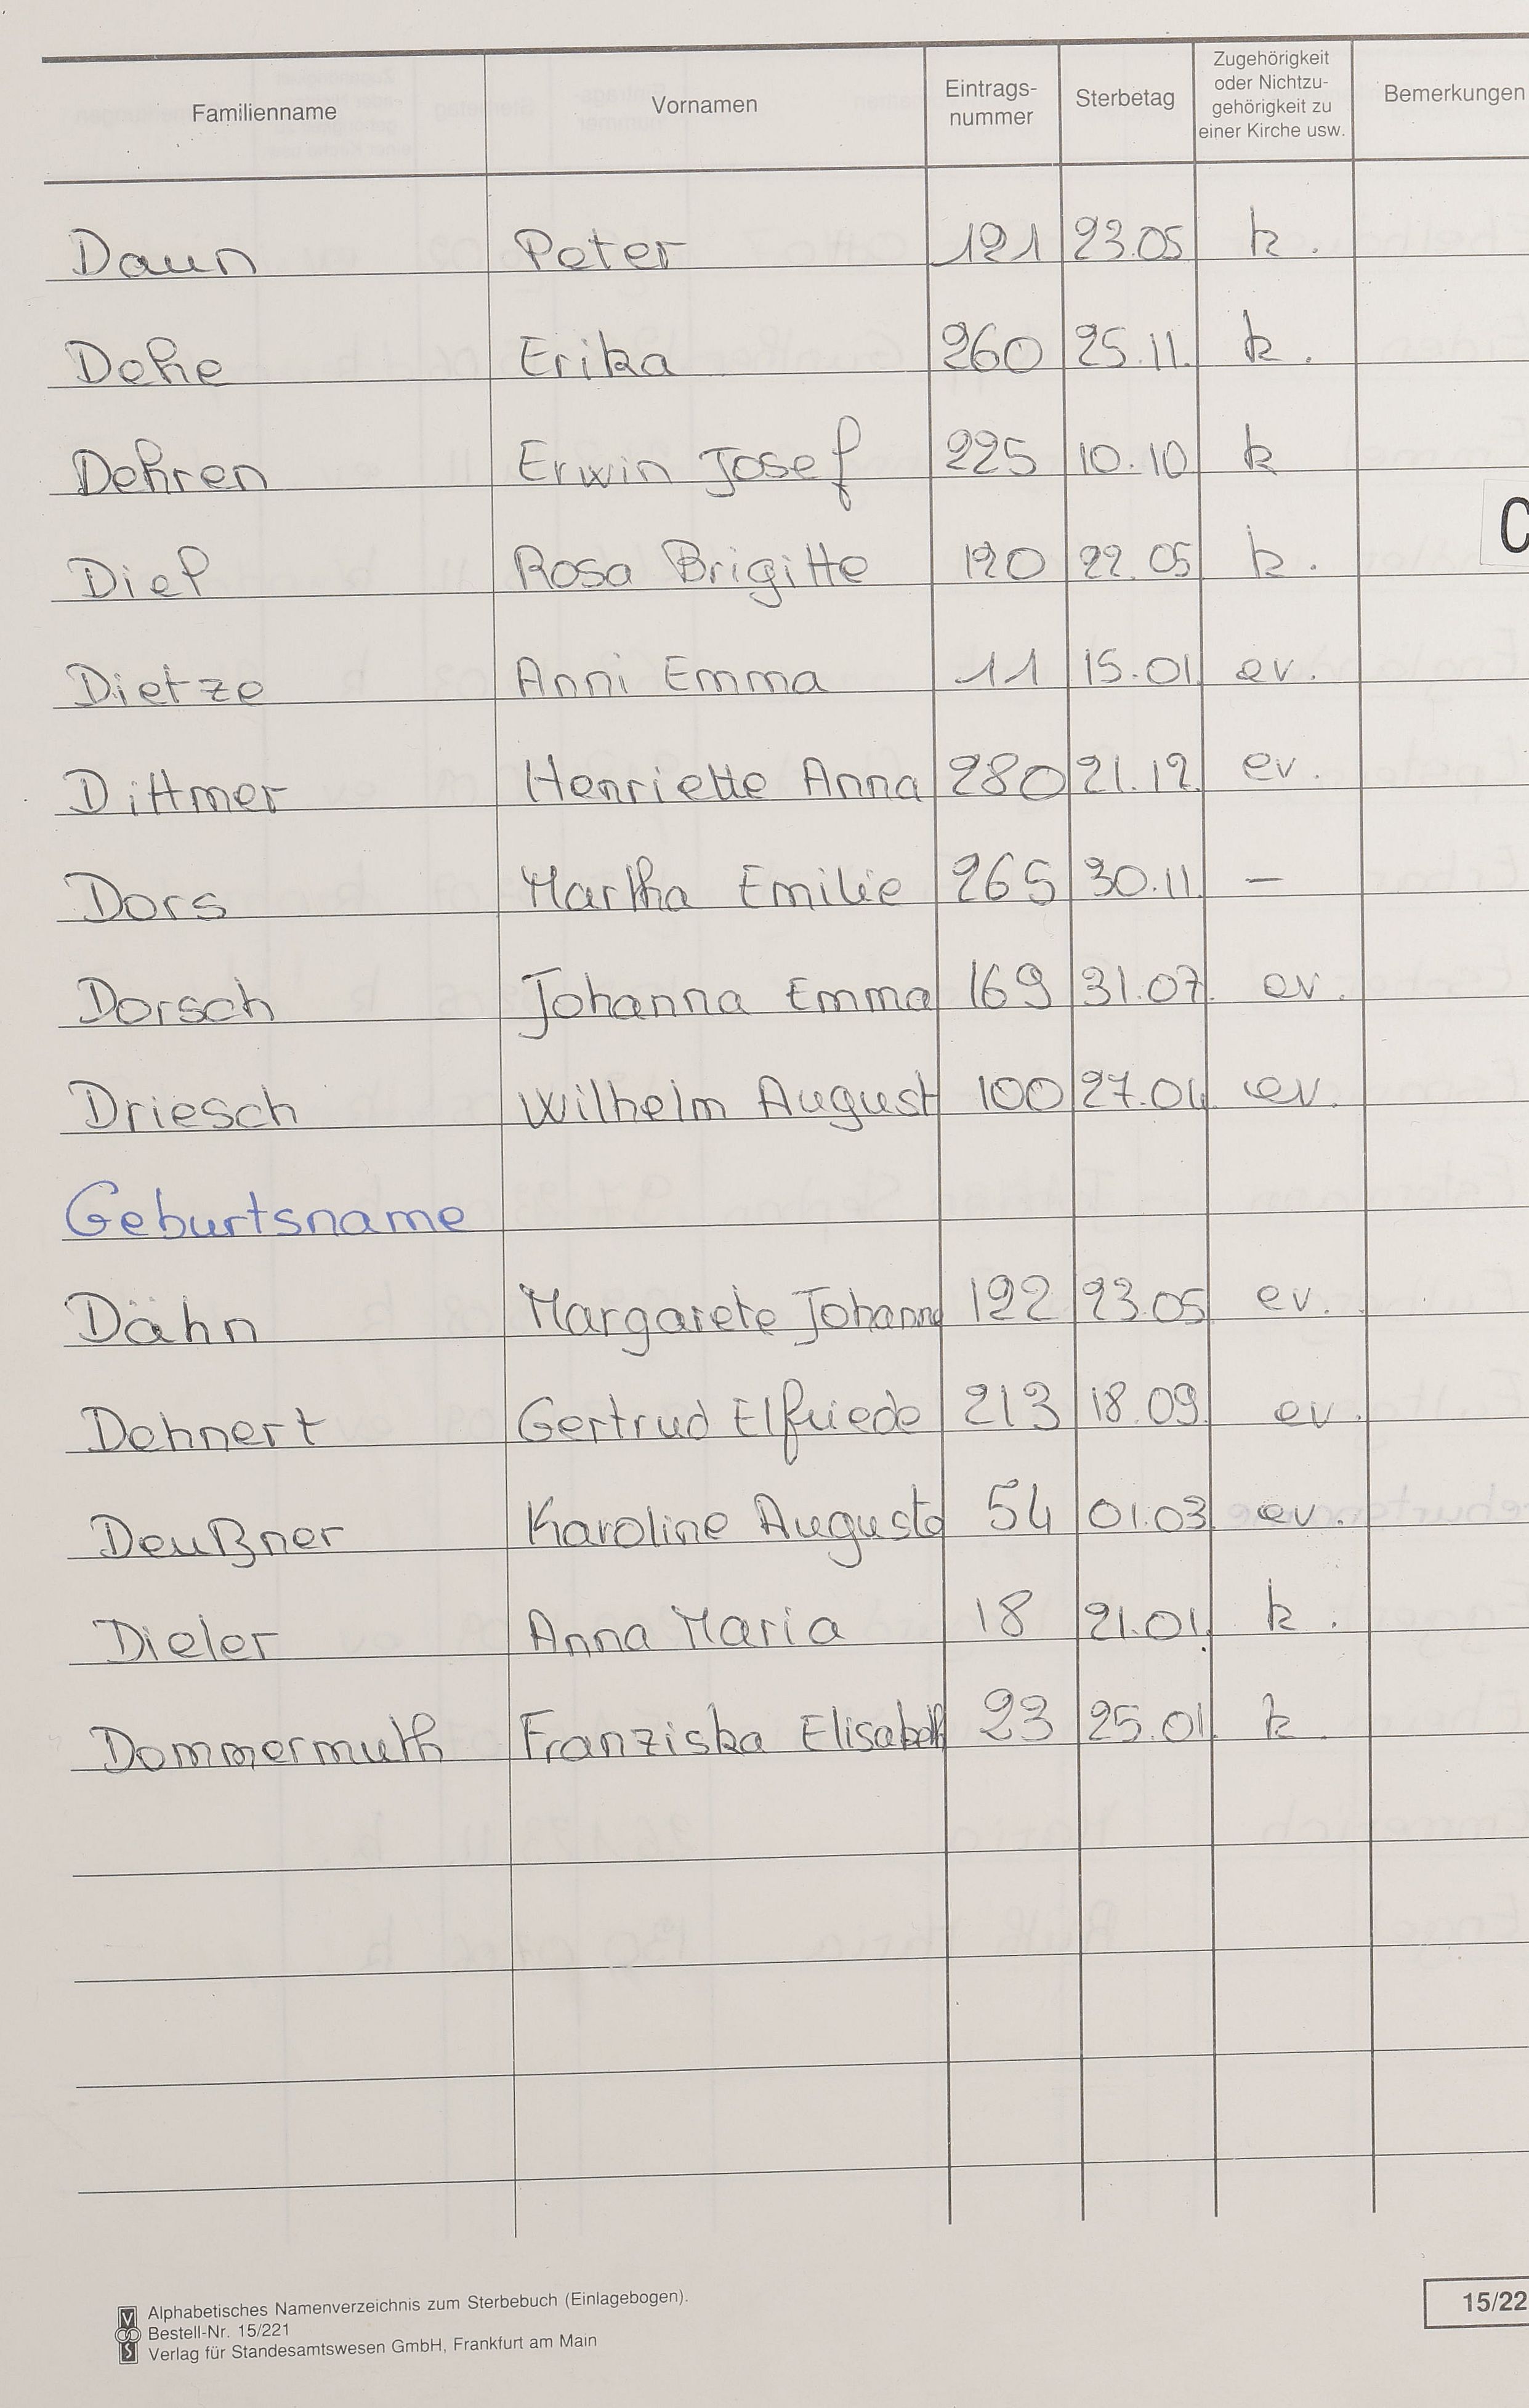 Familienname Vornamen Eintrags-nummer Sterbetag Zugehörigkeit oder Nichtzu-gehörigkeit zu einer Kirche usw. Bemerkungen
Daun Peter 121 23.05 k.
Dehe Erika 260 25.11. k.
Dehren Erwin Josef 225 10.10 k
Diel Rosa Brigitte 120 22.05 k.
Dietze Anni Emma 11 15.01. ev.
Dittmer Henriette Anna 280 21.12. ev.
Dors Martha Emilie 265 30.11. –
Dorsch Johanna Emma 169 31.07. ev.
Driesch Wilhelm August 100 27.04. ev.
Geburtsname
Dähn Margarete Johanna 122 23.05 ev.
Dehnert Gertrud Elfriede 213 18.09. ev.
Deußner Karoline Auguste 54 01.03. ev.
Dieler Anna Maria 18 21.01. k.
Dommermuth Franziska Elisabeth 23 25.01. k.
Alphabetisches Namenverzeichnis zum Sterbebuch (Einlagebogen).
Bestell-Nr. 15/221
Verlag für Standesamtswesen GmbH, Frankfurt am Main
15/22